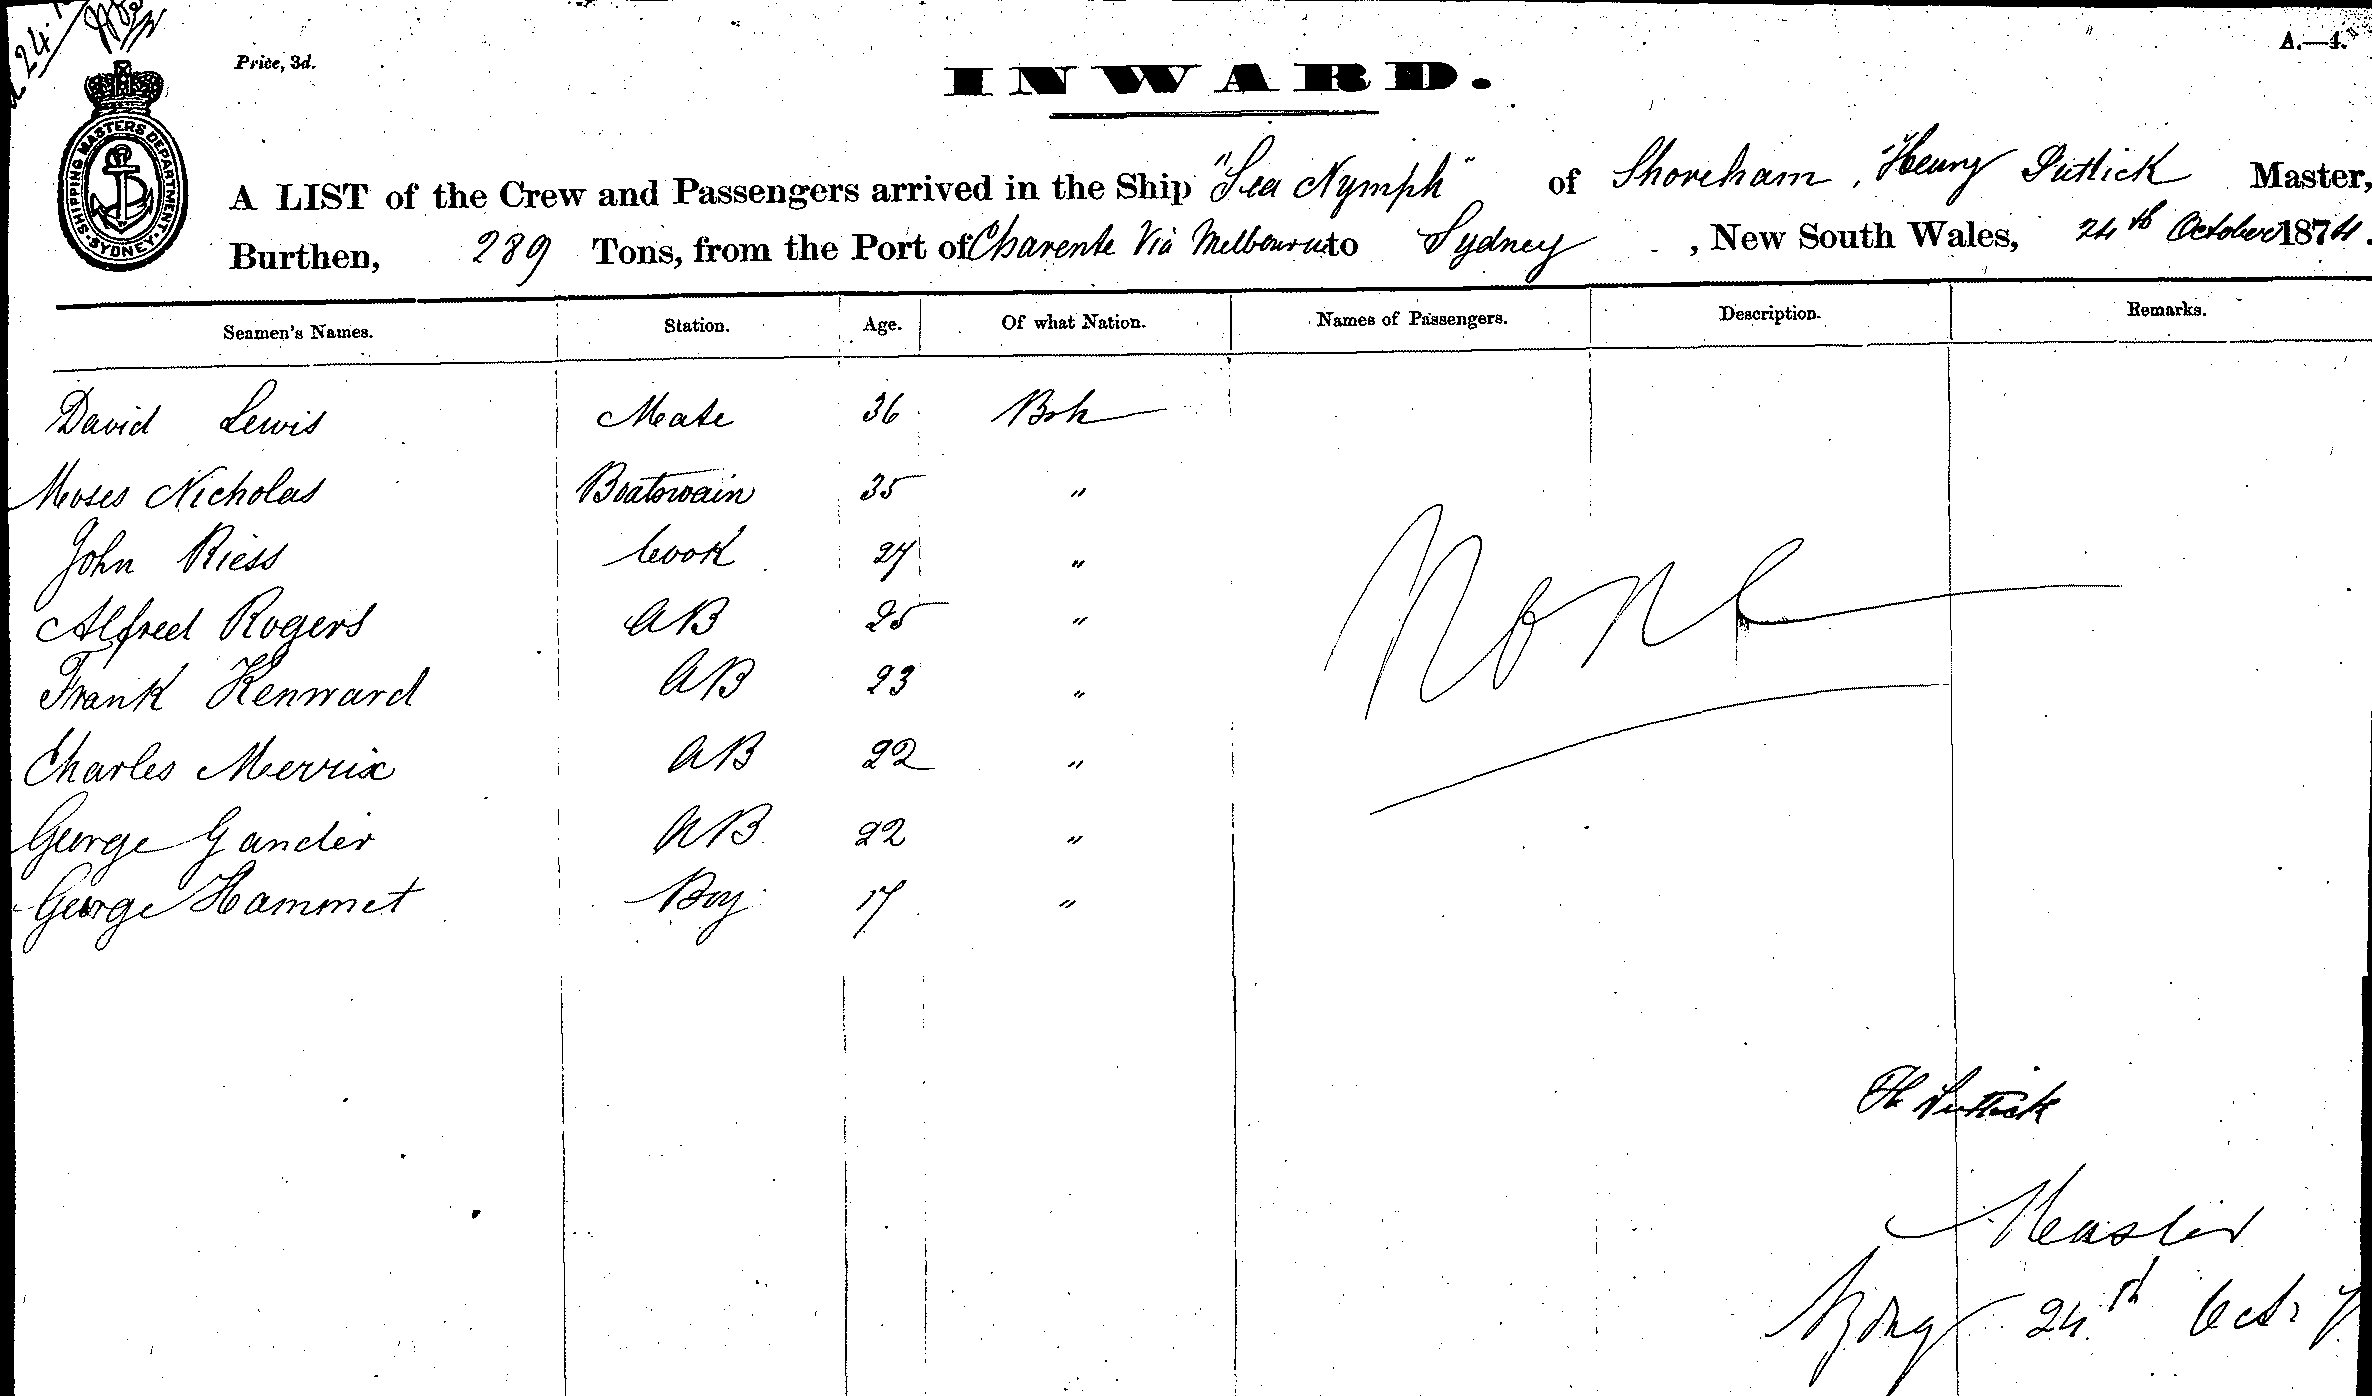 24.
Price, 3d.
A.—4.
INWARD.
SHIPPING MASTERS DEPARTMENT. SYDNEY.
A LIST of the Crew and Passengers arrived in the Ship "Sea Nymph" of Shoreham, Henry Puttick Master,
Burthen, 289 Tons, from the Port of Charente Via Melbourne to Sydney, New South Wales, 24th October 1874.
Seamen's Names. Station. Age. Of what Nation. Names of Passengers. Description. Remarks.
David Lewis Mate 36 Bsh
Moses Nicholas Boatswain 35 "
John Riess Cook 27 "
Alfred Rogers AB 25 "
None
Frank Kenward AB 23 "
Charles Merrix AB 22 "
George Gander AB 22 "
George Hammet Boy 17 "
H Puttick
Master
Sydney 24th Oct 7